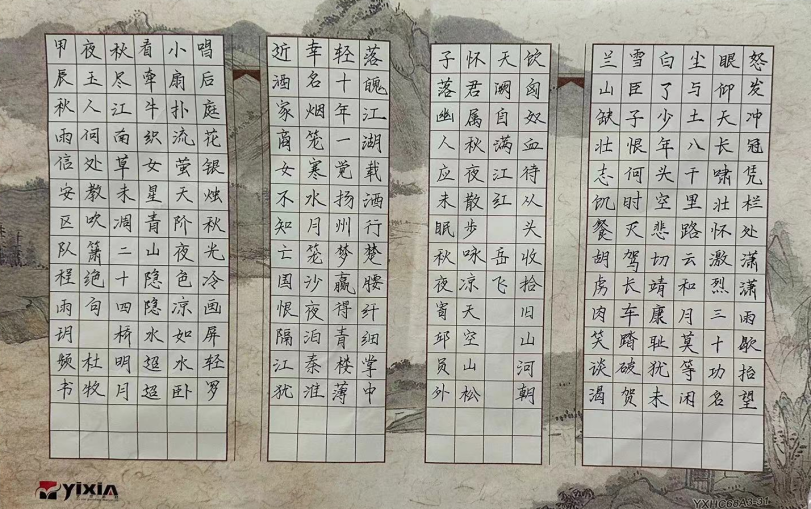 怒发冲冠凭栏处潇潇雨歇抬望
眼仰天长啸壮怀激烈三十功名
尘与土八千里路云和月莫等闲
白了少年头空悲切靖康耻犹未
雪臣子恨何时灭驾长车踏破贺
兰山缺壮志饥餐胡虏肉笑谈渴
饮匈奴血待从头收拾旧山河朝
天阙自满江红 岳飞
怀君属秋夜散步咏凉天空山松
子落幽人应未眠秋夜寄邱员外
落魄江湖载酒行楚腰纤细掌中
轻十年一觉扬州梦赢得青楼薄
幸名烟笼寒水月笼沙夜泊秦淮
近酒家商女不知亡国恨隔江犹
唱后庭花银烛秋光冷画屏轻罗
小扇扑流萤天阶夜色凉如水卧
看牵牛织女星青山隐隐水超超
秋尽江南草未凋二十四桥明月
夜玉人何处教吹箫绝句 杜牧
甲辰秋雨信安区队程雨玥书
yixin